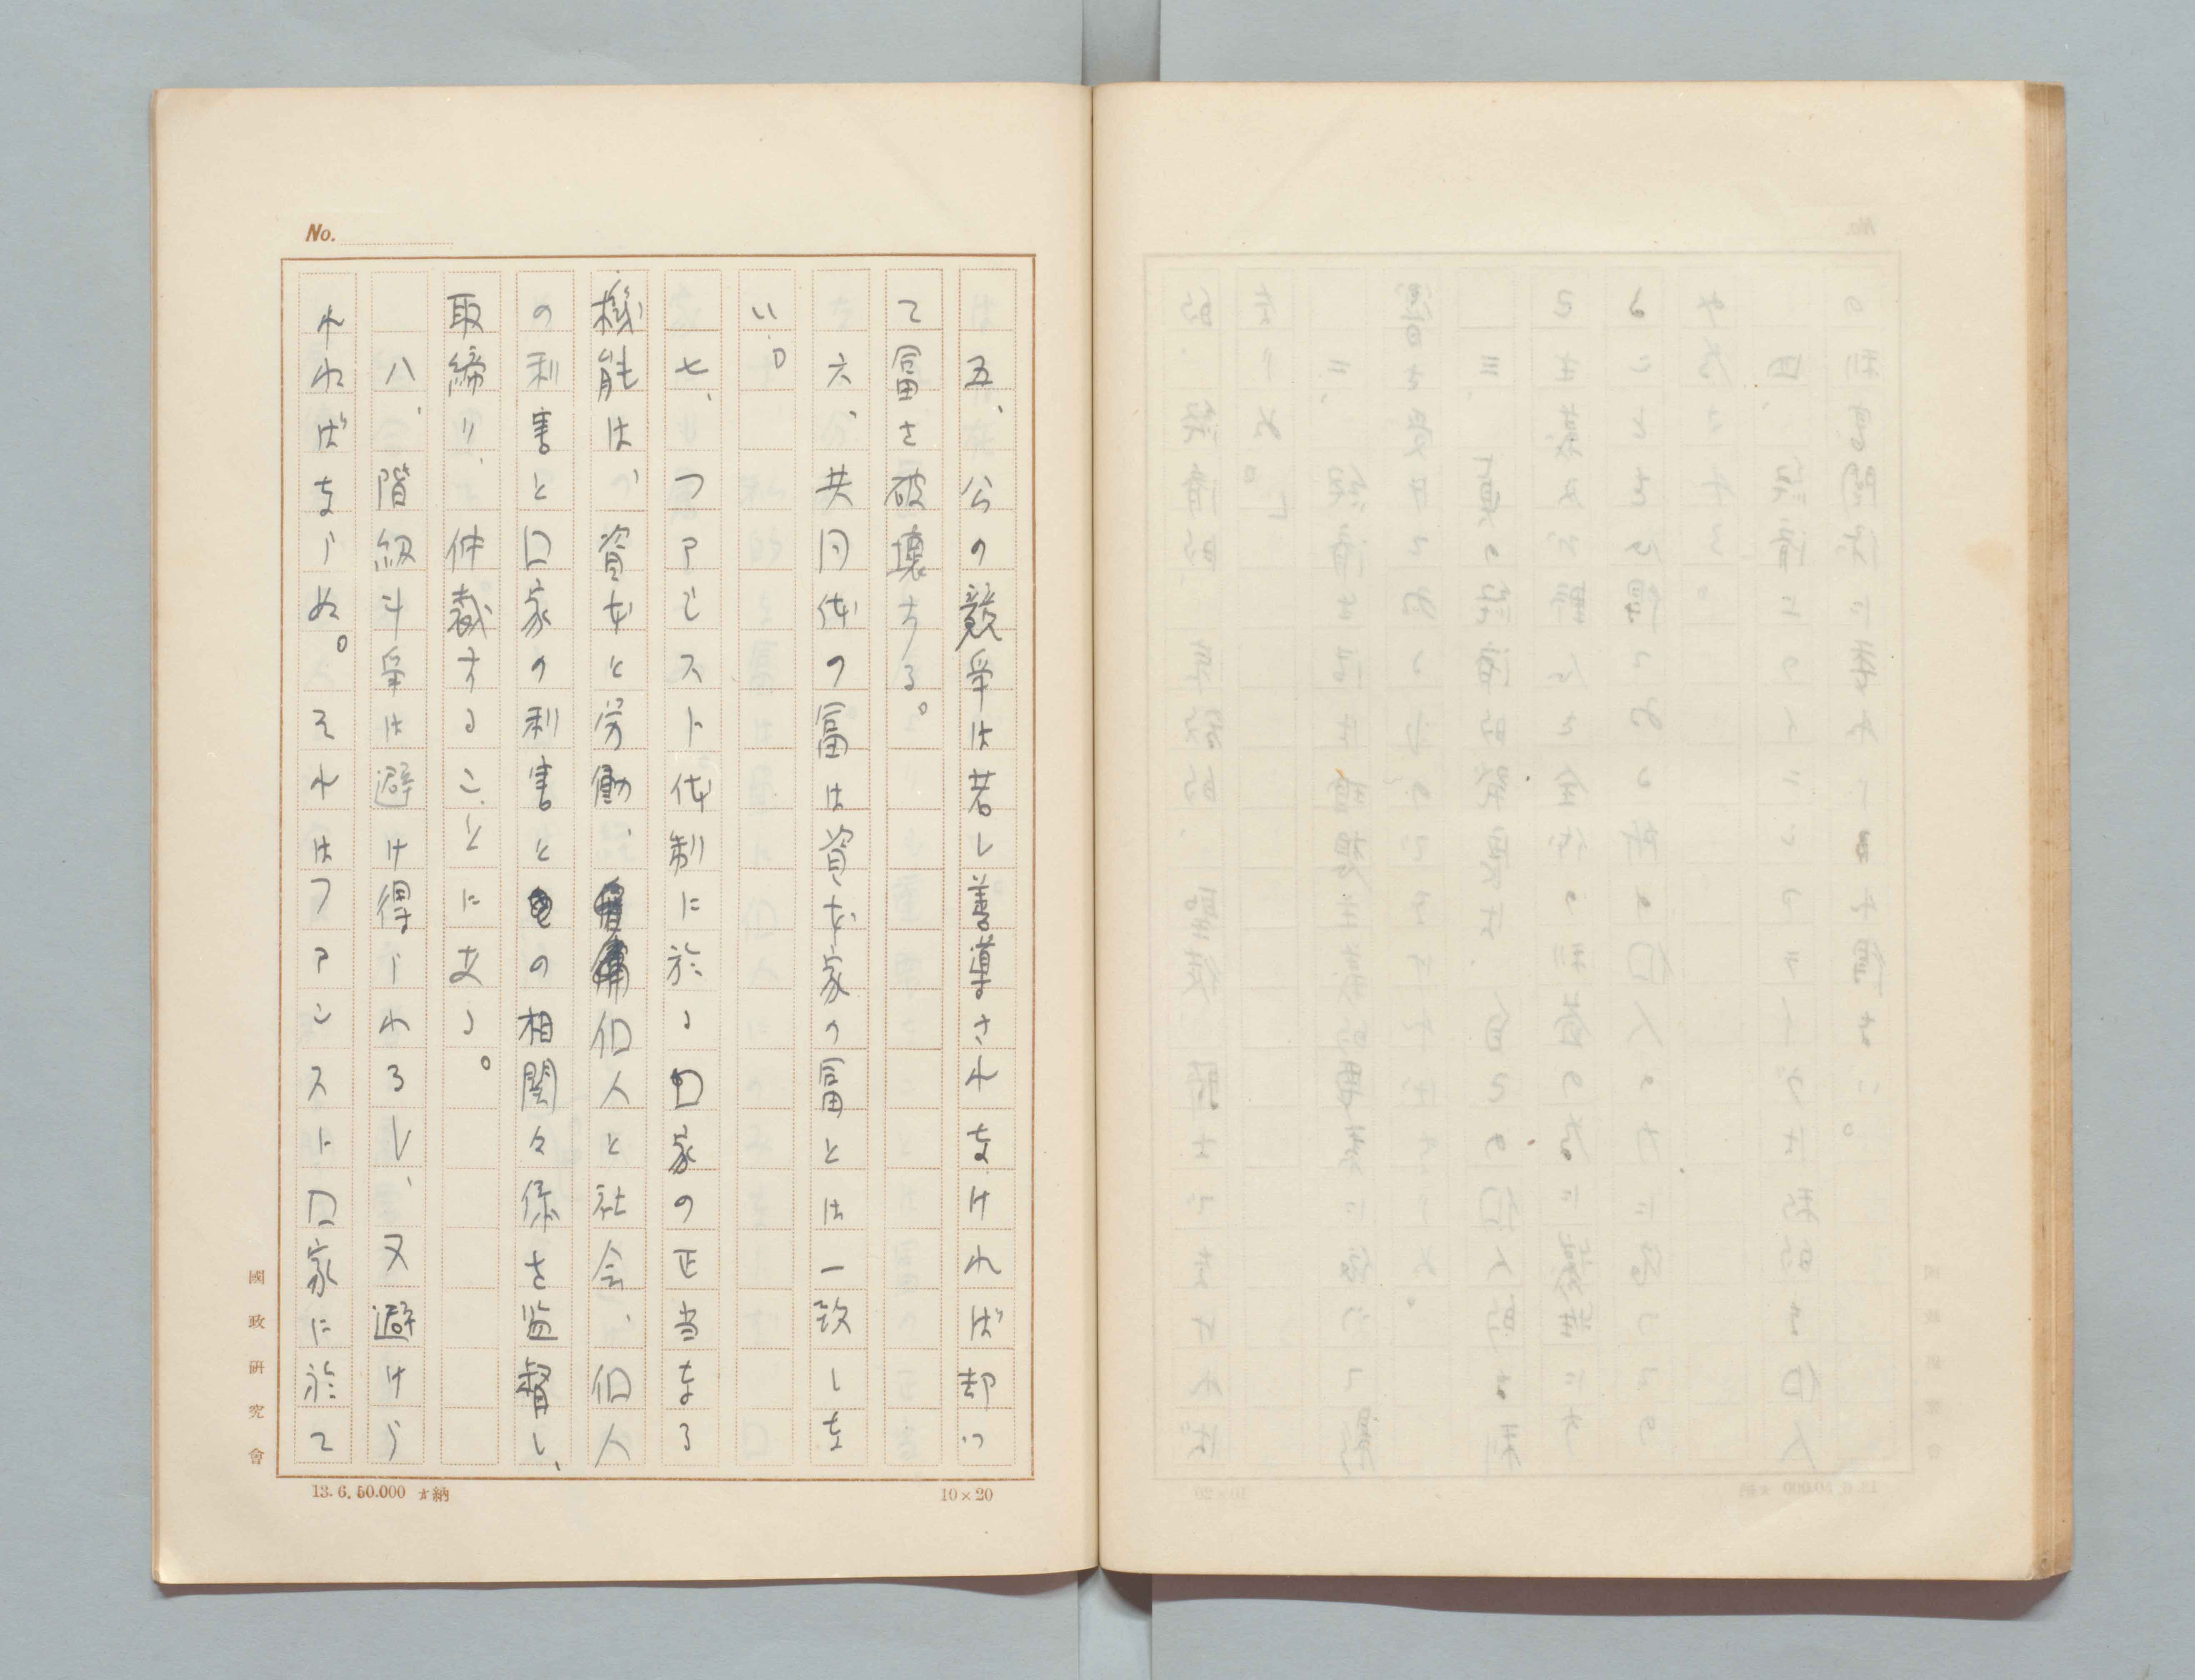 No.
五、公の競争は若し善導されなければ却つ
て富を破壊する。
六、共同体の富は資本家の富とは一致しな
い。
七、フアシスト体制に於る囗家の正当なる
機能は、資本と労働、個人と社会、個人
の利害と囗家の利害との相関々係を監督し、
取締り、仲裁することに在る。
八、階級斗争は避け得られるし、又避けら
れねばならぬ。それはフアシスト囗家に於て
國政研究會
13.6.50.000 才納
10×20